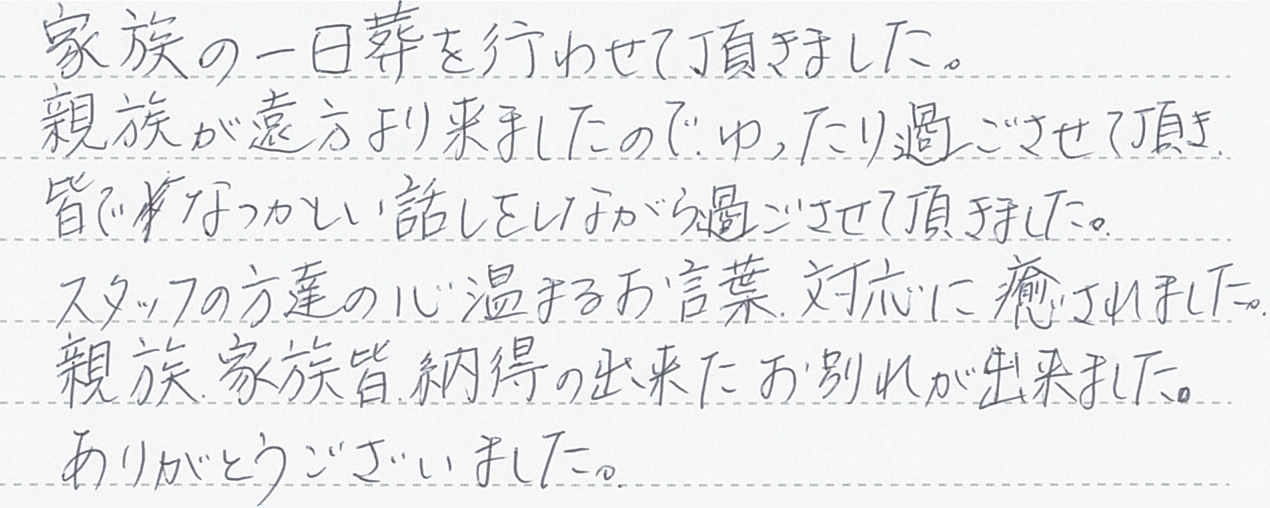 家族の一日葬を行わせて頂きました。
親族が遠方より来ましたので、ゆったり過ごさせて頂き、
皆でなつかしい話しをしながら過ごさせて頂きました。
スタッフの方達の心温まるお言葉、対応に癒されました。
親族、家族皆、納得の出来たお別れが出来ました。
ありがとうございました。